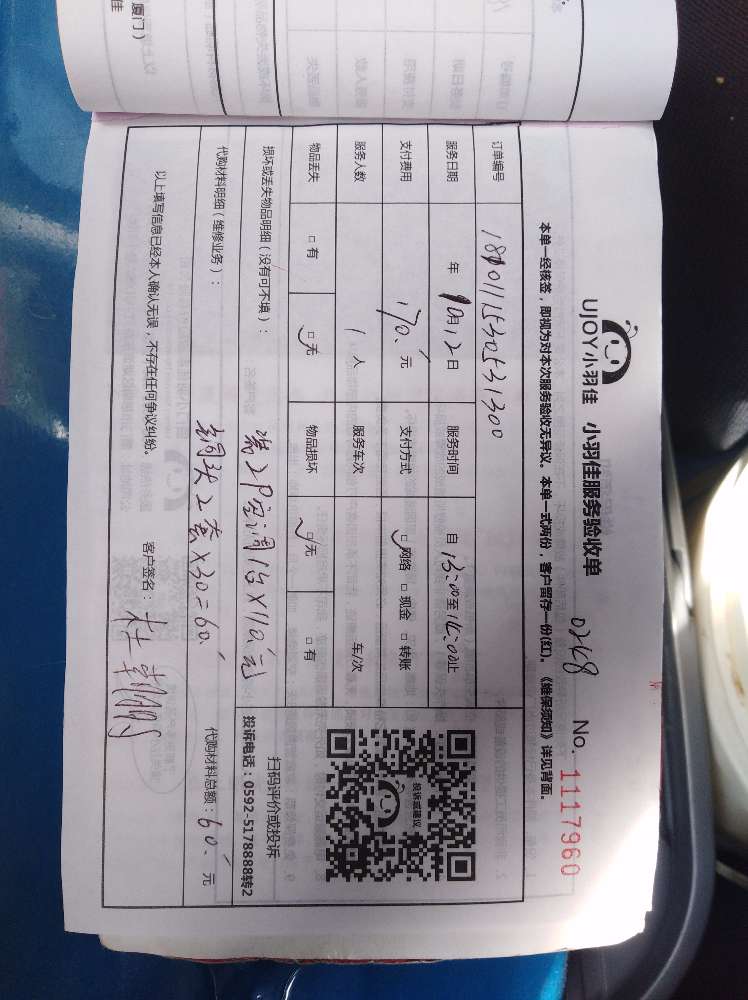 厦门）
佳
UJOY小羽佳 小羽佳服务验收单 0248 No. 11117960
本单一经核签，即视为对本次服务验收无异议。本单一式两份，客户留存一份(红)。《维保须知》详见背面。
订单编号 180011530531300
服务日期 年 10月12日 服务时间 自 13:00至14:00止
支付费用 170.元 支付方式 ☑网络 □现金 □转账
服务人数 1 人 服务车次 车/次
物品丢失 □有 ☑无 物品损坏 ☑无 □有
损坏或丢失物品明细（没有可不填）：
装2P空调1台×110元
扫码评价或投诉
投诉电话：0592-5178888转2
投诉或建议
代购材料明细（维修业务）：
铜头2套×30=60.
代购材料总额：60.元
以上填写信息已经本人确认无误，不存在任何争议纠纷。 客户签名：